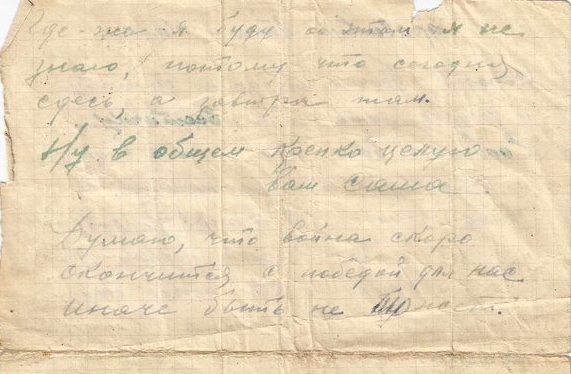 Где-же я буду об этом я не
знаю, потому что сегодня
сдесь, а завтра там.
Ну в общем крепко целую
Ваш Саша
Думаю, что война скоро
окончится, с победой для нас
иначе быть не может.